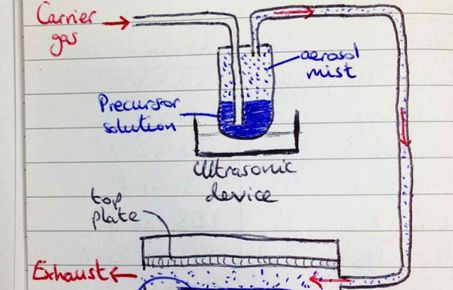 Carrier
gas
aerosol
mist
Precursor
solution
Ultrasonic
device
top
plate
Exhaust